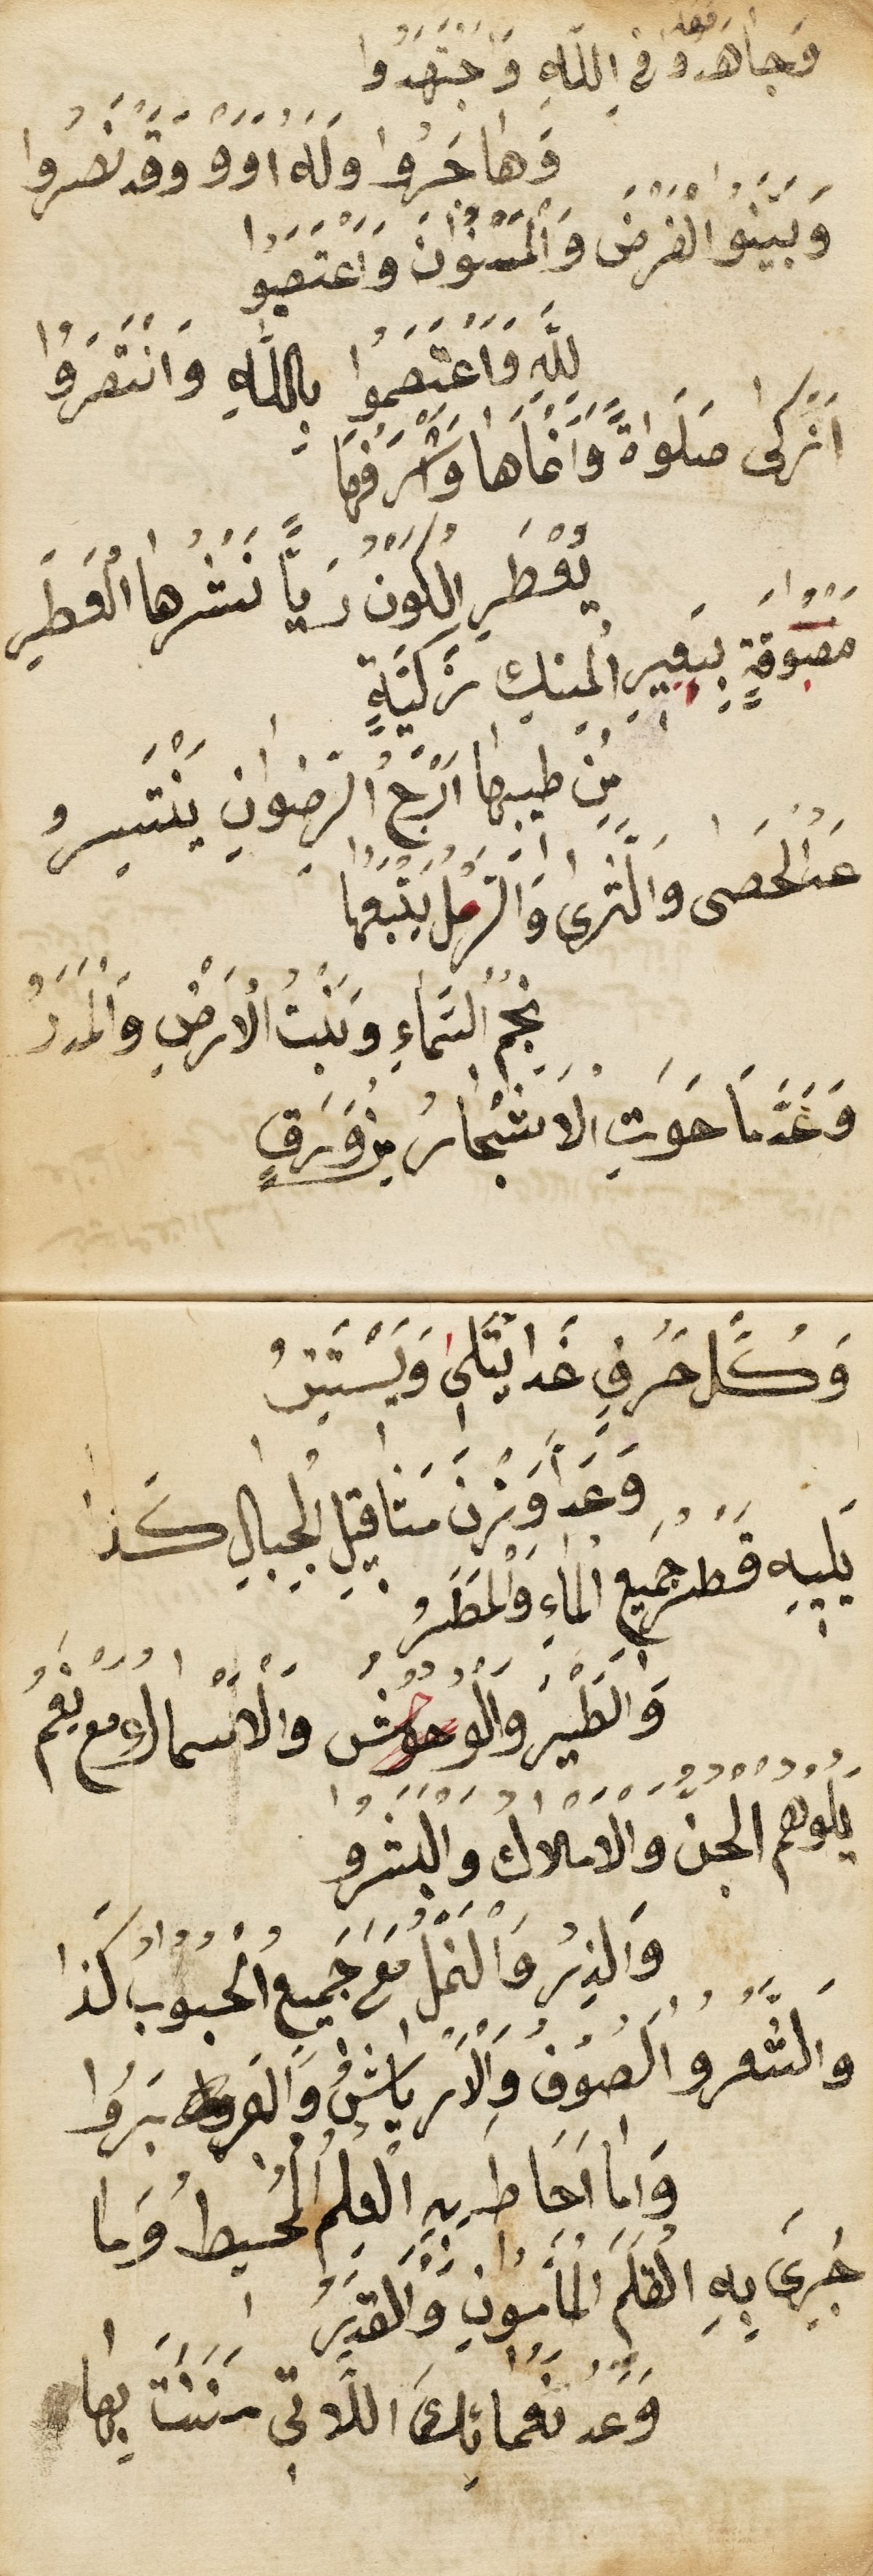 وَجَاهَدُوا مَعَهُ فِي اللَّهِ وَجْتَهَدُوا
وَهَاجَرُوا وَلَهُ اٰوَوْ وَقَدْ نَصَرُوا
وَبَيَّنُوا الْفَرْضَ وَالْمَسْنُوْنَ وَاعْتَصَبُوا
لِلَّهِ وَاَعْتَصَمُوا بِاللَّهِ وَانْتَصَرُوْا
اَزْكٰى صَلَوَاةً وَاَنْمَاهَا وَاَشْرَفَهَا
يُعَطِّرِ الْكَوْنُ رَيًّا نَشْرُهَا الْعَطِرِ
مَعْبُوْقَةٍ بِبَعِيرِ الْمِسْكِ زَكِيَّةٍ
مِنْ طِيبِهَا اَرَجُ الرِّضْوَانِ يَنْتَسِرُ
عَدَ الْحَصَى وَالثَّرٰى وَالرَّمْلِ يَتْبَعُهَا
نَجْمُ السَّمَاءِ وَنَبْتُ الْاَرْضِ وَالْمَدَرُ
وَعَدَّ مَا حَوَتِ الْاَشْجَارُ مِنْ وَرَقٍ
وَكُلَّ حَرْفٍ غَدَا يُتْلٰى وَيَسْتَتِرُ
وَعَدَّ وَزْنَ مَثَاقِيلِ الْجِبَالِ كَذَا
يَلِيهِ قَطْرُ جَمِيعِ الْمَاءِ وَالْمَطَرُ
وَالطَّيْرُ وَالْوُحُوْشُ وَالْاَسْمَاكِ مَعْ نِعَمُ
يَلُوْهُمُ الْجِنُّ وَالْاَمْلَاكُ وَالْبَشَرُوْا
وَالذِّرُ وَالنَّمْلُ مَعَ جَمِيعِ الْحُبُوْبُ كَذَا
وَالشَّعْرُ وُالصُّوْفُ وَالْاَرْيَاشُ وَالْوَبَرُوا
وَمَا اَحَاطَ بِهِ الْعِلْمُ الْمُحِيطُ وَمَا
جَرَىَ بِهِ الْقَلَمَ الْمَأْمُوْنِ وَالْقَدَرُ
وَعَدَّ نَعْمَائِكَ اللَّاتِي مَنَنْتَ بِهَا